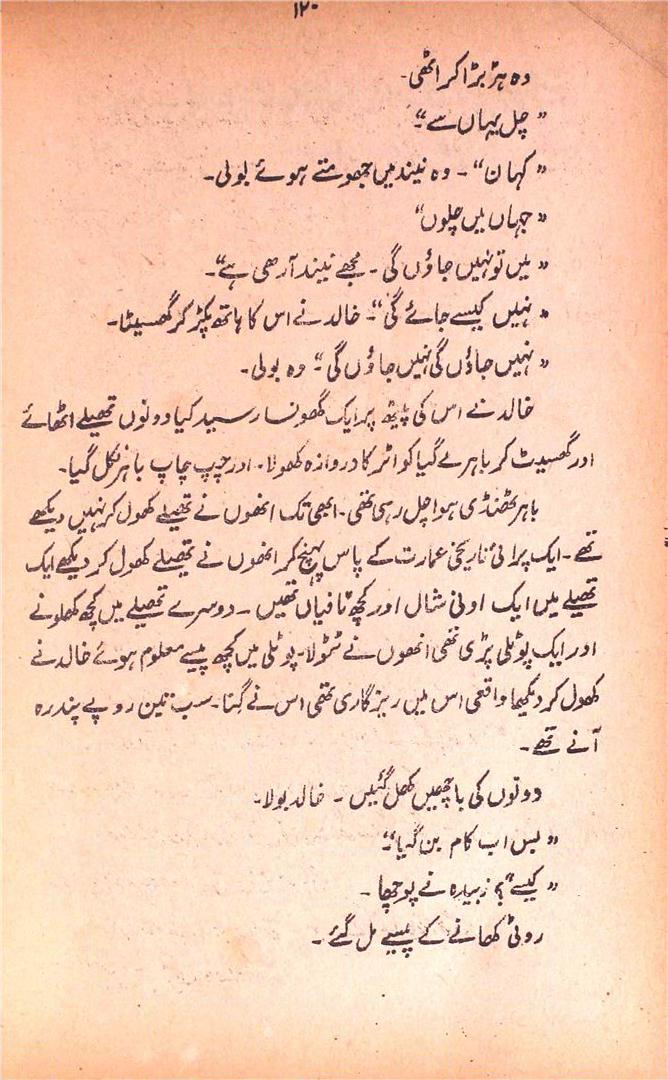 ۱۲۰
وہ ہڑبڑا کر اٹھی۔
”چل یہاں سے“۔
”کہاں“۔ وہ نیند میں جھومتے ہوئے بولی۔
”جہاں میں چلوں“
”میں تو نہیں جاؤں گی۔ مجھے نیند آرہی ہے“۔
”نہیں کیسے جائے گی“۔ خالد نے اس کا ہاتھ پکڑ کر گھسیٹا۔
”نہیں جاؤں گی نہیں جاؤں گی“۔ وہ بولی۔
خالد نے اس کی پیٹھ پر ایک گھونسا رسید کیا دونوں تھیلے اٹھائے
اور گھسیٹ کر باہر لے گیا کواٹر کا دروازہ کھولا۔ اور چپ چاپ باہر نکل گیا۔
باہر ٹھنڈی ہوا چل رہی تھی۔ ابھی تک انھوں نے تھیلے کھول کر نہیں دیکھے
تھے۔ ایک پرانی تاریخی عمارت کے پاس پہنچ کر انھوں نے تھیلے کھول کر دیکھے ایک
تھیلے میں ایک اونی شال اور کچھ ٹافیاں تھیں۔ دوسرے تھیلے میں کچھ کھلونے
اور ایک پوٹلی پڑی تھی انھوں نے ٹٹولا۔ پوٹلی میں کچھ پیسے معلوم ہوئے خالد نے
کھول کر دیکھا واقعی اس میں ریزگاری تھی اس نے گنا۔ سب تین روپے پندرہ
آنے تھے۔
دونوں کی باچھیں کھل گئیں۔ خالد بولا۔
”بس اب کام بن گیا“۔
”کیسے“؟ زبیدہ نے پوچھا۔
روٹی کھانے کے پیسے مل گئے۔